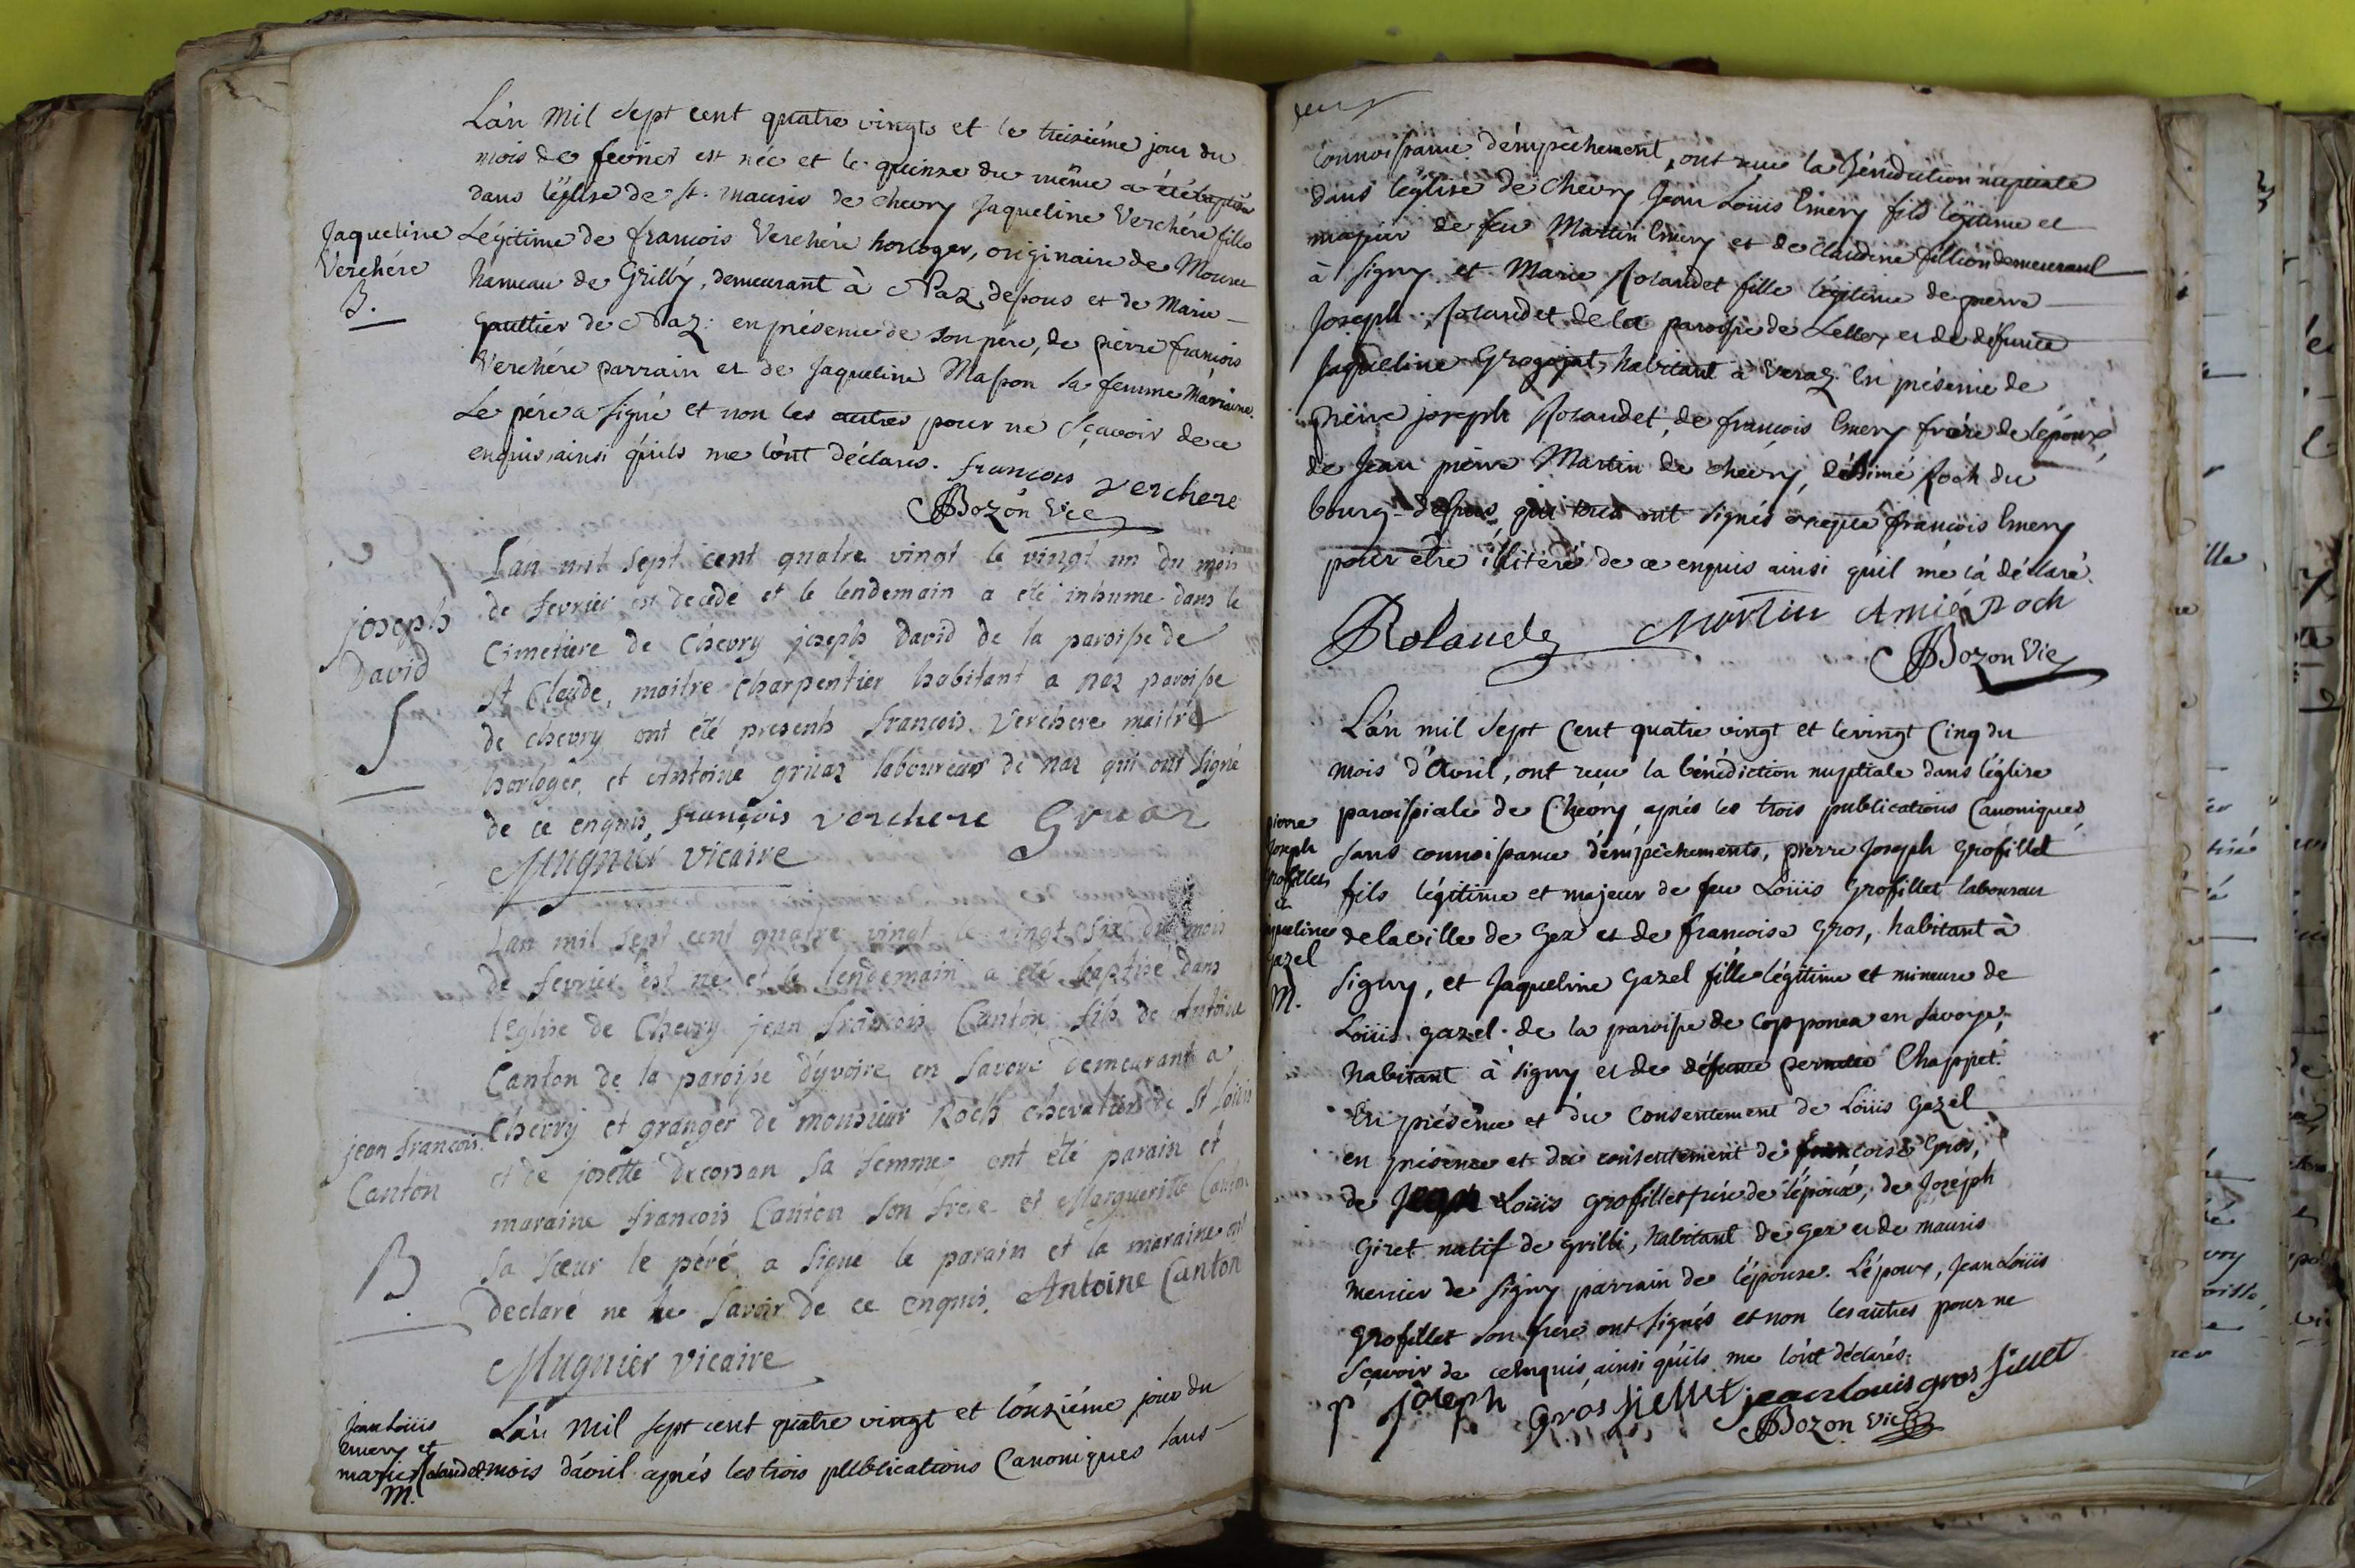 L'an mil sept cent quatre vingts et le treisiéme jour du
mois de fevrier est née et le quinse du même a été baptisée
dans l'église de st. mauris de chevry Jaqueline Verchére fille
Jaqueline
Verchére
B.
Légitime de francois Verchére horloger, originaire de Mourex
hameau de Grilly, demeurant à Naz dessous et de Marie
Gaultier de Naz: en présence de son pére, de pierre françois
Verchére parrain et de Jaqueline Masson sa femme Marraine.
Le pére a signé et non les autres pour ne sçavoir de ce
enquis, ainsi qu'ils me l'ont déclarés. francois verchere
JBozon Vic
joseph
David
S
L'an mil sept cent quatre vingt le vingt un du mois
de fevrier est decedé et le lendemain a été inhumé dans le
cimetiere de Chevry joseph David de la paroisse de
st Claude, maitre charpentier habitant a naz paroisse
de chevry ont été presents francois Verchere maitre
horloger, et Antoine gruaz laboureur de naz qui ont signé
de ce enquis, françois verchere Gruaz
Mugnier vicaire
Lan mil sept cent quatre vingt le vingt six du mois
de fevrier est né et le lendemain a été baptisé dans
l'eglise de Chevry jean francois Canton fils de Antoine
Canton de la paroisse d'yvoire en Savoye demeurant a
Chevry et granger de monsieur Roch chevalier de st Loüis
jean francois
Canton
B
et de josette decorsan sa femme ont été parain et
maraine francois Canton son frere et Margueritte Canton
sa sœur le péré a signé le parain et la maraine ont
declaré ne le savoir de ce enquis. Antoine Canton
Mugnier vicaire
Jean Loüis
Emery et
marie Rolandet
M.
L'an mil sept cent quatre vingt et l'onziéme jour du
mois d'avril aprés les trois publications Canoniques sans
connoissance d'émpêchement, ont reçue la bénédiction nuptiale
dans l'église de chevry Jean Loüis Emery fils légitime et
majeur de feu Martin Emery et de Claudine fillion demeurant
à signy et Marie Rolandet fille légitime de pierre
Joseph Rolandet de la paroisse de Lellex et de défunte
Jaqueline Grogojat, habitant à Veraz En présence de
pierre joseph Rolandet, de françois Emery frére de l'époux,
de Jean pierre Martin de chevry, d'Aimé Roch du
bourg-dessus, qui tous ont signés excepté françois Emery
pour être illitéré de ce enquis ainsi qu'il me l'a déclaré.
Rolande Martin Amié Roch
JBozon Vic
L'an mil sept Cent quatre vingt et le vingt Cinq du
mois d'Avril, ont reçu la bénédiction nuptiale dans l'église
paroissiale de Chevry aprés les trois publications Canoniques,
pierre
Joseph
Grosfillet
et
jaqueline
gazel
M.
sans connoissance d'émpêchements, pierre Joseph Grosfillet
fils légitime et majeur de feu Loüis Grosfillet laboureur
de la ville de Gex et de francoise Gros, habitant à
signy, et Jaqueline Gazel fille légitime et mineure de
Loüis gazel de la paroisse de Copponex en savoye,
habitant à signy et de défunte pernette Chappet.
En présence et du Consentement de Loüis Gazel
en présence et du consentement de francoise Gros,
de Jean Loüis Grosfillet frére de l'époux, de Joseph
Giret natif de grilli, habitant de Gex et de mauris
mercier de signy parrain de l'épouse. L'époux, Jean Loüis
Grosfillet son frere ont signés et non les autres pour ne
sçavoir de ce enquis, ainsi qu'ils me l'ont déclarés.
p joseph gros fiellet jean louis gros fillet
JBozon Vic